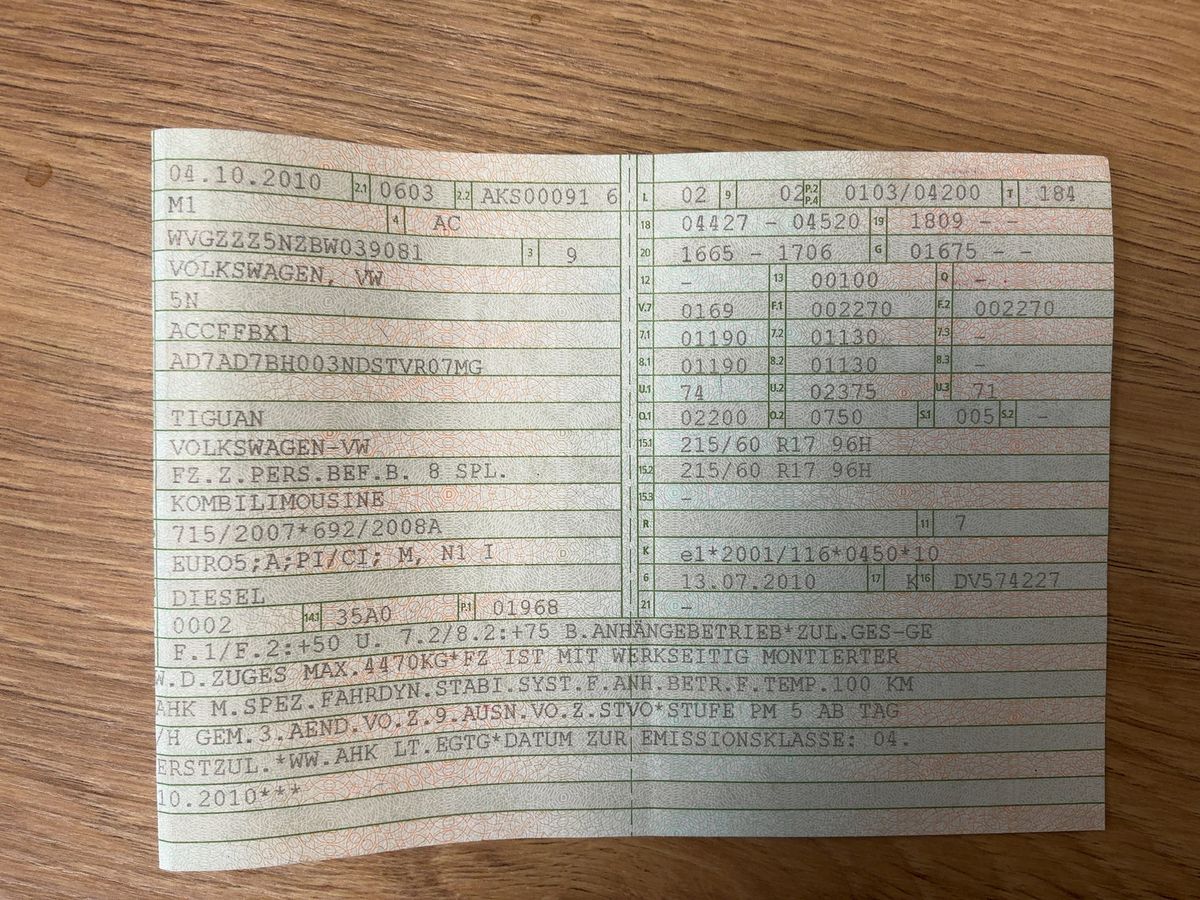 04.10.2010 2.1 0603 2.2 AKS00091 6
M1 4 AC
WVGZZZ5NZBW039081 3 9
VOLKSWAGEN, VW
5N
ACCFFBX1
AD7AD7BH003NDSTVR07MG
TIGUAN
VOLKSWAGEN-VW
FZ.Z.PERS.BEF.B. 8 SPL.
KOMBILIMOUSINE
715/2007*692/2008A
EURO5;A;PI/CI; M, N1 I
DIESEL
0002 14.1 35A0 P.1 01968
L 02 9 02 P.2 P.4 0103/04200 T 184
18 04427 - 04520 19 1809 - -
20 1665 - 1706 G 01675 - -
12 - 13 00100 Q -
V.7 0169 F.1 002270 F.2 002270
7.1 01190 7.2 01130 7.3 -
8.1 01190 8.2 01130 8.3 -
U.1 74 U.2 02375 U.3 71
O.1 02200 O.2 0750 S.1 005 S.2 -
15.1 215/60 R17 96H
15.2 215/60 R17 96H
15.3 -
R 11 7
K e1*2001/116*0450*10
6 13.07.2010 17 K 16 DV574227
21 -
F.1/F.2:+50 U. 7.2/8.2:+75 B.ANHÄNGEBETRIEB*ZUL.GES-GE
W.D.ZUGES MAX.4470KG*FZ IST MIT WERKSEITIG MONTIERTER
AHK M.SPEZ.FAHRDYN.STABI.SYST.F.ANH.BETR.F.TEMP.100 KM
/H GEM.3.AEND.VO.Z.9.AUSN.VO.Z.STVO*STUFE PM 5 AB TAG
ERSTZUL.*WW.AHK LT.EGTG*DATUM ZUR EMISSIONSKLASSE: 04.
10.2010***